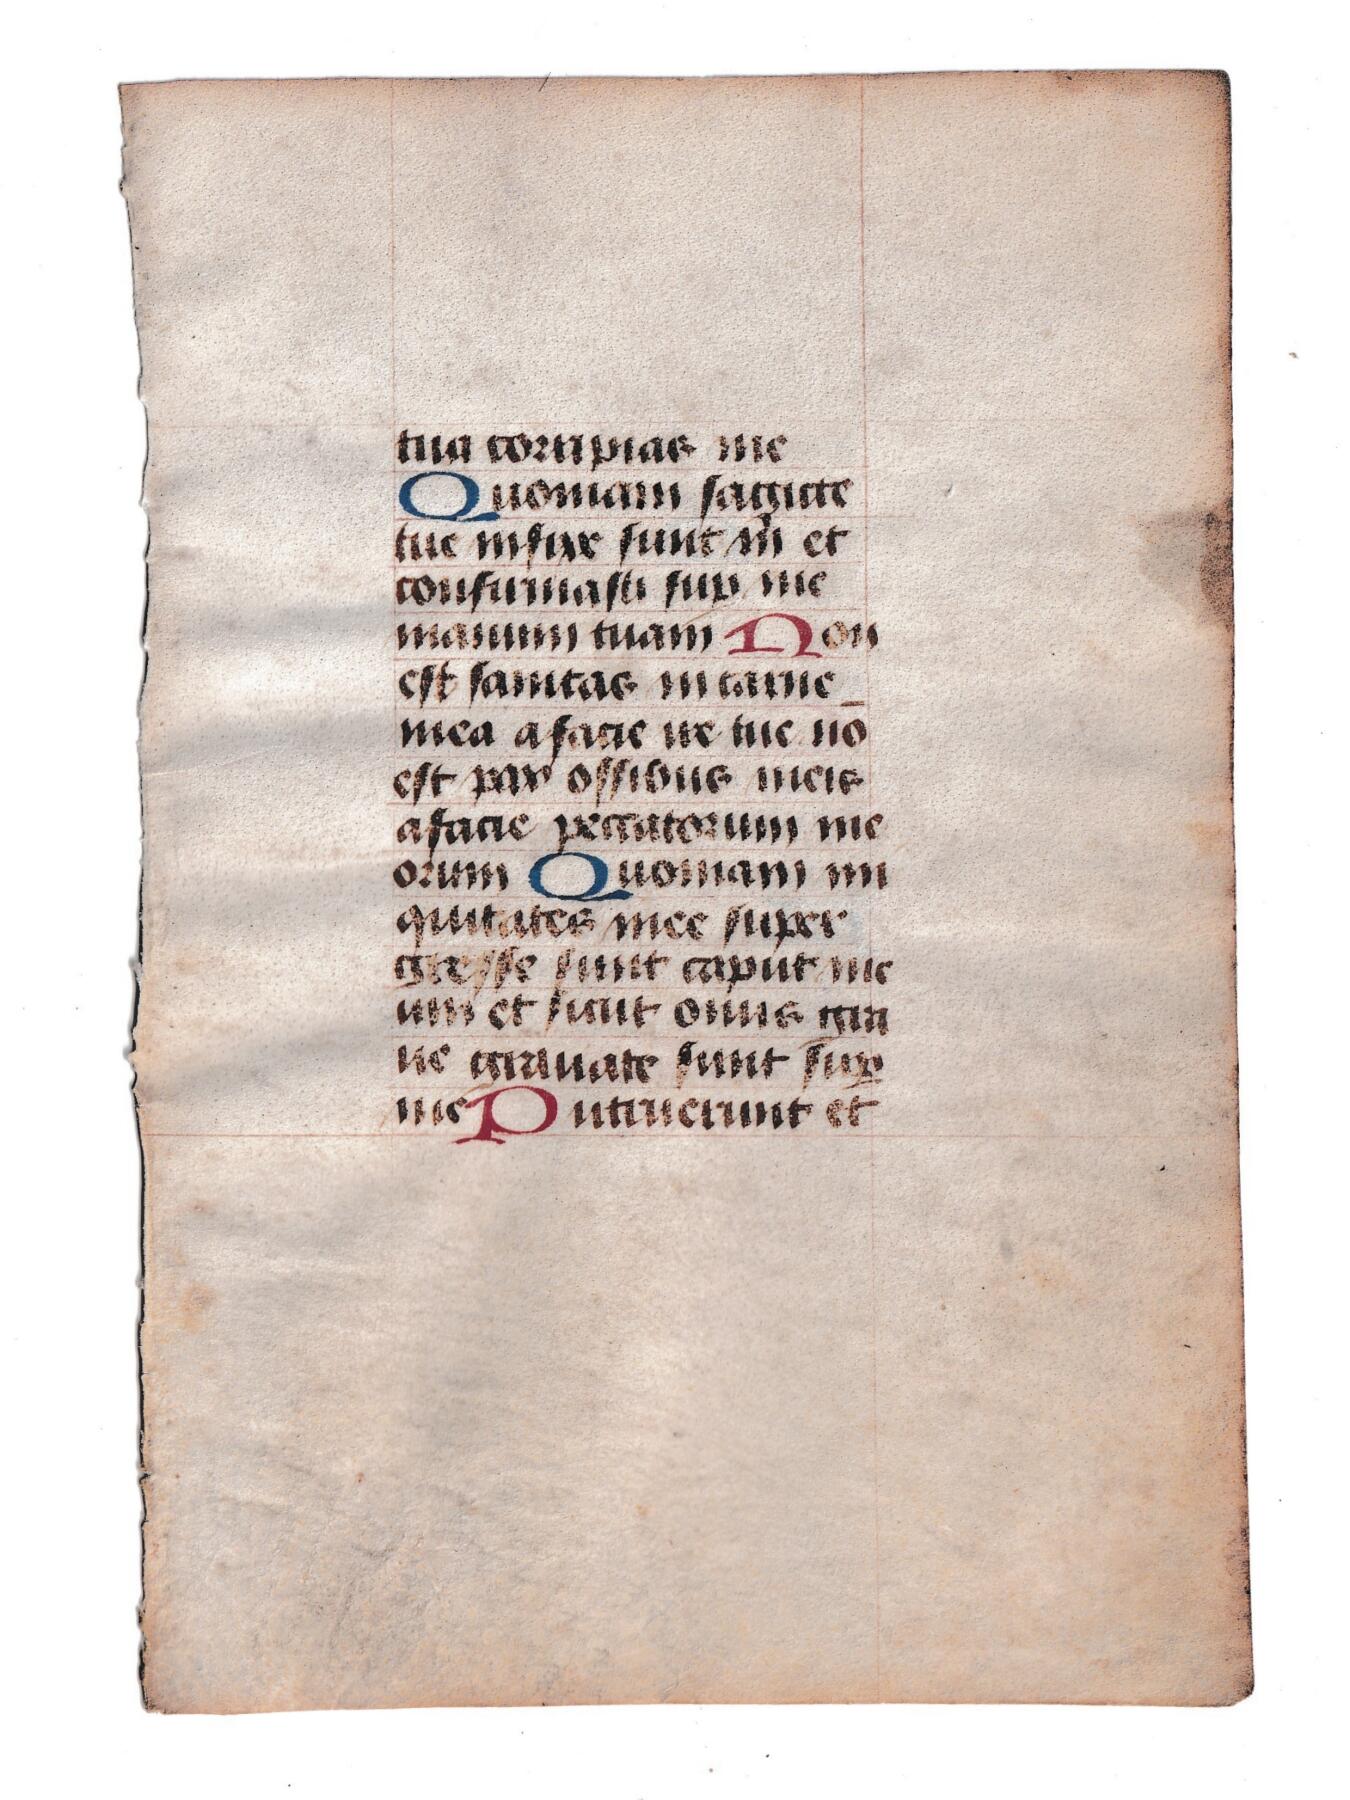 tua corripias me
Quoniam sagitte
tue infixe sunt m̄ et
confirmasti sup̱ me
manum tuam Non
est sanitas in carne
mea a facie ire tue nō
est pax ossibus meis
a facie peccatorum me
orum Quoniam ini
quitates mee super
gresse sunt caput me
um et sicut onus gra
ue grauate sunt sup̱
me Putruerunt et